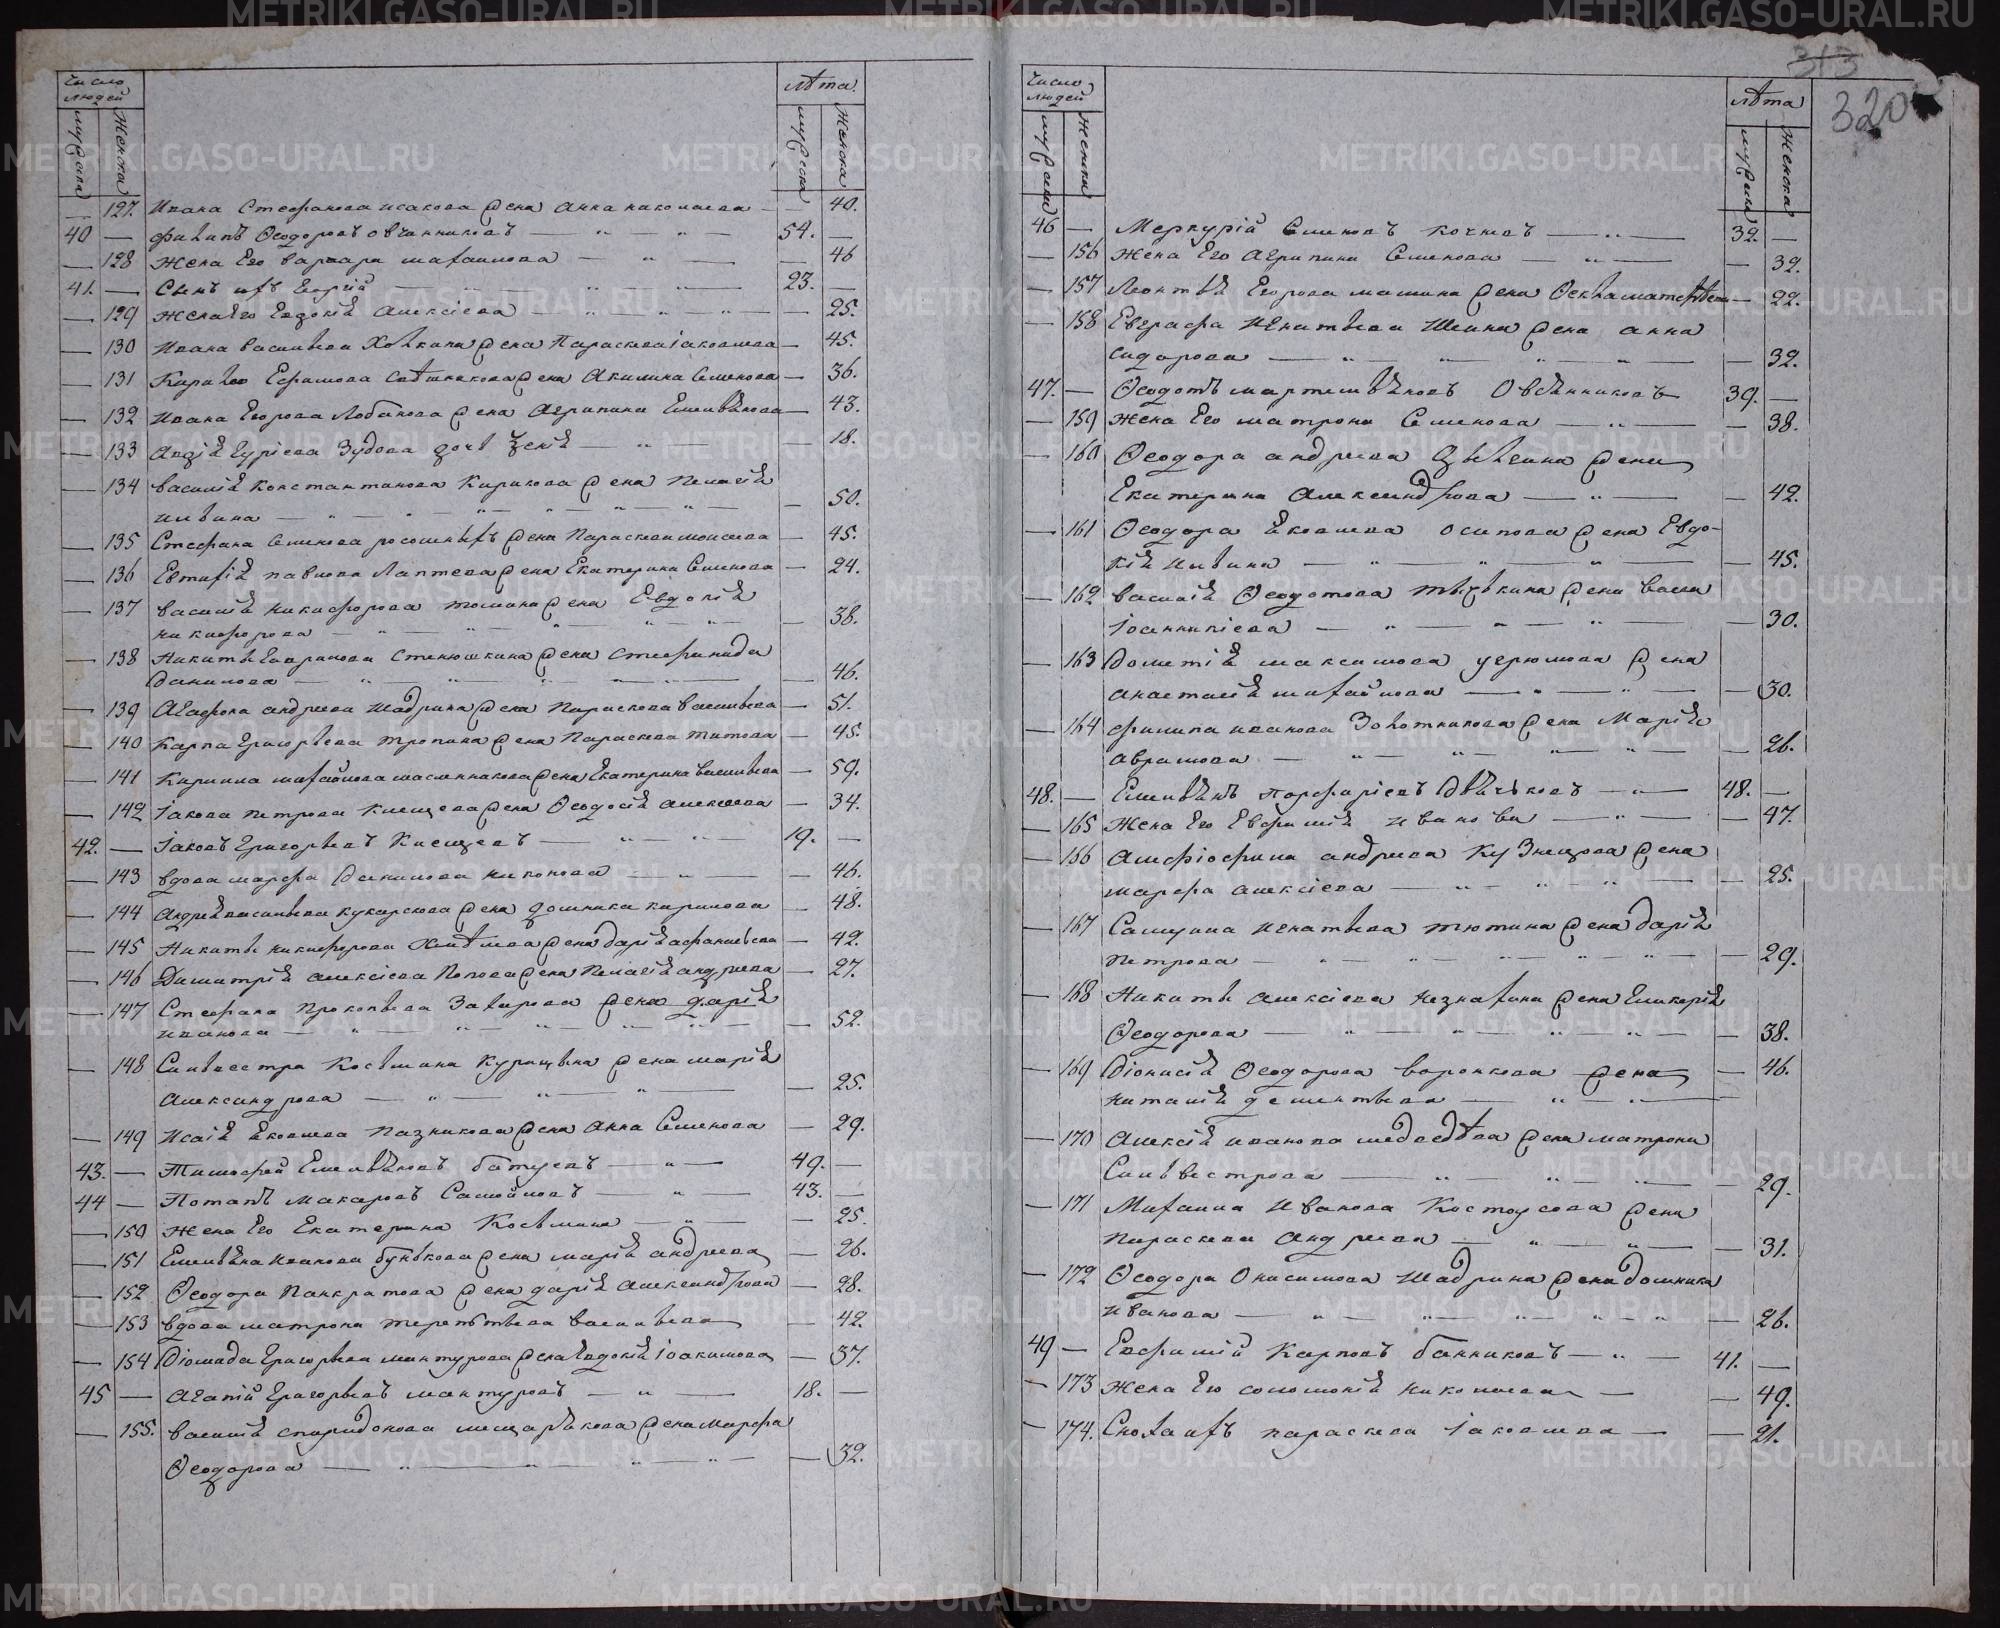 число людей
лѣта
мужеска
женска
мужеска
женска
— 127. Ивана Стефанова исакова жена Анна николаева — — 40.
40 — филипъ Ѳеодоровъ овчинниковъ — 54. —
— 128 жена Его варвара михаилова — — 46
41. — Сынъ ихъ Георгій — 23. —
— 129 жена Его Евдокія Алексіева — — 25.
— 130 Ивана васильева жена Параскева іаковлева — 45.
— 131 Кирилы Ефимова жена Акилина Семенова — 36.
— 132 Ивана Егорова Лобанова жена Агрипина Емельянова — 43.
— 133 Авдія Гуріева Зудова дочь — — 18.
— 134 василія Константинова Кирикова жена Пелагія
ильина — — 50.
— 135 Стефана Семенова жена Параскева моисеева — 45.
— 136 Евтихія павлова Лаптева жена Екатерина Семенова — 24.
— 137 василія никифорова томина жена Евдокія
никифорова — — 38.
— 138 Никиты Гаврилова Стенюшкина жена Стефанида
Данилова — — 46.
— 139 Агафона андреева шадрина жена Параскева васильева — 51.
— 140 Карпа Григорьева тропина жена Параскева титова — 45.
— 141 Кирилла михайлова масленникова жена Екатерина васильева — 59.
— 142 Іакова петрова Клещева жена Ѳеодосія алексеева — 34.
42. — Іаковъ Григорьевъ Клещевъ — 19. —
— 143 вдова марфа Данилова никонова — — 46.
— 144 Андрея васильева кукарскова жена домника кирилова — 48.
— 145 Никиты никифорова жена дарія афанасьева — 42.
— 146 Димитрія алексіева Попова жена Пелагія андреева — 27.
— 147 Стефана Прокопьева Захарова жена дарія
иванова — — 52.
— 148 Сильвестра Косьмина Курицына жена марія
Александрова — — 25.
— 149 Исаія Яковлева Пазникова жена Анна Семенова — 29.
43. — Тимофей Емельяновъ батуевъ — 49. —
44 — Потапъ Макаровъ Самойловъ — 43. —
— 150 жена Его Екатерина Косьмина — — 25.
— 151 Емельяна иванова бунькова жена марія андреева — 26.
— 152 Ѳеодора Панкратова жена дарія Александрова — 28.
— 153 вдова матрона терентьева васильева — 42.
— 154 Діомида Григорьева мантурова жена Евдокія іоакимова — 37.
45 — Агапій Григорьевъ мантуровъ — 18. —
— 155. василія спиридонова мещерякова жена Марфа
Ѳеодорова — — 32.
313
320
число людей
лѣта
мужеска
женска
мужеска
женска
46 — Меркурій Семеновъ кочневъ — 32. —
— 156 жена Его Агрипина Семенова — — 32.
— 157 Леонтія Егорова машина жена Ѳекла матвѣева — 22.
— 158 Евграфа Игнатьева Шеина жена анна
сидорова — — 32.
47. — Ѳеодотъ мартемьяновъ Овсянниковъ 39. —
— 159 жена Его матрона Семенова — — 38.
— 160 Ѳеодора андреева жена
Екатерина Александрова — — 42.
— 161 Ѳеодора Яковлева осипова жена Евдо-
кія ильина — — 45.
— 162 василія Ѳеодотова жена васса
іоанникіева — — 30.
— 163 Дометія максимова угрюмова жена
анастасія михайлова — — 30.
— 164 филипа иванова Золотникова жена Марія
аврамова — — 26.
48. — Емельянъ порфиріевъ Дьячковъ — 48. —
— 165 жена Его Евфимія иванова — — 47.
— 166 Амфіофила андреева Кузнецова жена
марфа алексіева — — 25.
— 167 Самуила игнатьева тютина жена дарія
петрова — — 29.
— 168 Никиты алексіева незнахина жена Гликерія
Ѳеодорова — — 38.
— 169 Діонисія Ѳеодорова воронкова жена — 46.
наталія дементьева —
— 170 Алексія иванова медведѣва жена матрона
Сильвестрова — — 29.
— 171 Михаила Иванова Костоусова жена
параскева андреева — — 31.
— 172 Ѳеодора Онисимова шадрина жена домника
иванова — — 26.
49 — Евфимій Карповъ банниковъ — 41. —
— 173 жена Его соломонія николаева — — 49.
— 174. Сноха ихъ параскева Іаковлева — — 21.
METRIKI.GASO-URAL.RU